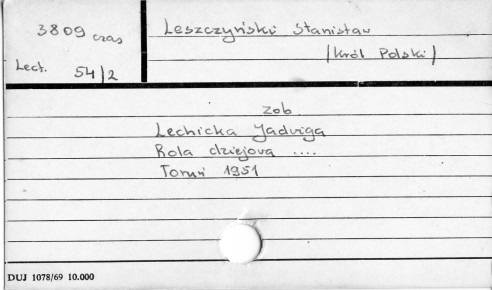 3809 czas
Lect. 54/2
Leszczyński Stanisław
/Król Polski/
zob.
Lechicka Jadwiga
Rola dziejowa ....
Toruń 1951
DUJ 1078/69 10.000